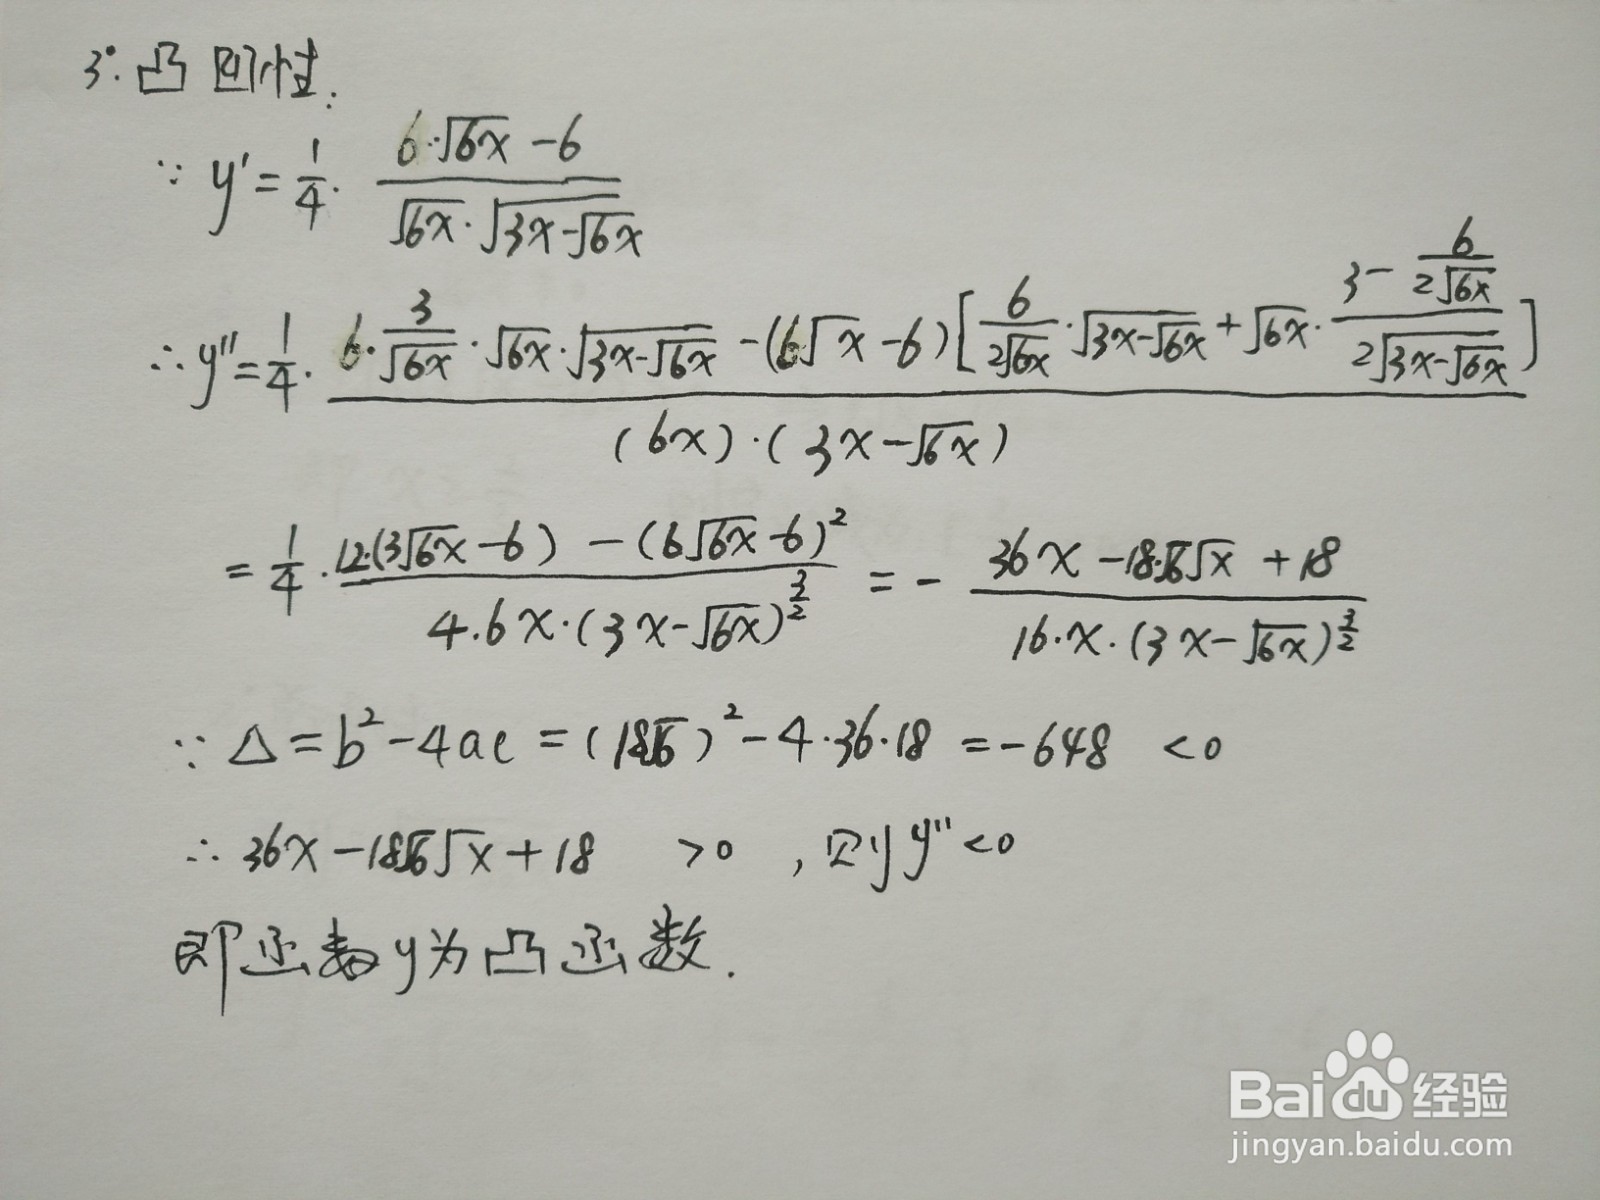 3°.凸凹性:
∵ y' = 1/4 · (6·√(6x) - 6) / (√(6x)·√(3x-√(6x)))
∴ y'' = 1/4 · (6·3/√(6x)·√(6x)·√(3x-√(6x)) - (6√x - 6)[6/(2√(6x))·√(3x-√(6x)) + √(6x)·(3 - 6/(2√(6x)))/(2√(3x-√(6x)))]) / ((6x)·(3x-√(6x)))
= 1/4 · (12·(3√(6x)-6) - (6√(6x)-6)²) / (4·6x·(3x-√(6x))^(3/2)) = - (36x - 18·√6√x + 18) / (16·x·(3x-√(6x))^(3/2))
∵ Δ = b² - 4ac = (18√6)² - 4·36·18 = -648 < 0
∴ 36x - 18√6√x + 18 > 0 , 则 y'' < 0
即函数y为凸函数.
Bai du 经验
jingyan.baidu.com